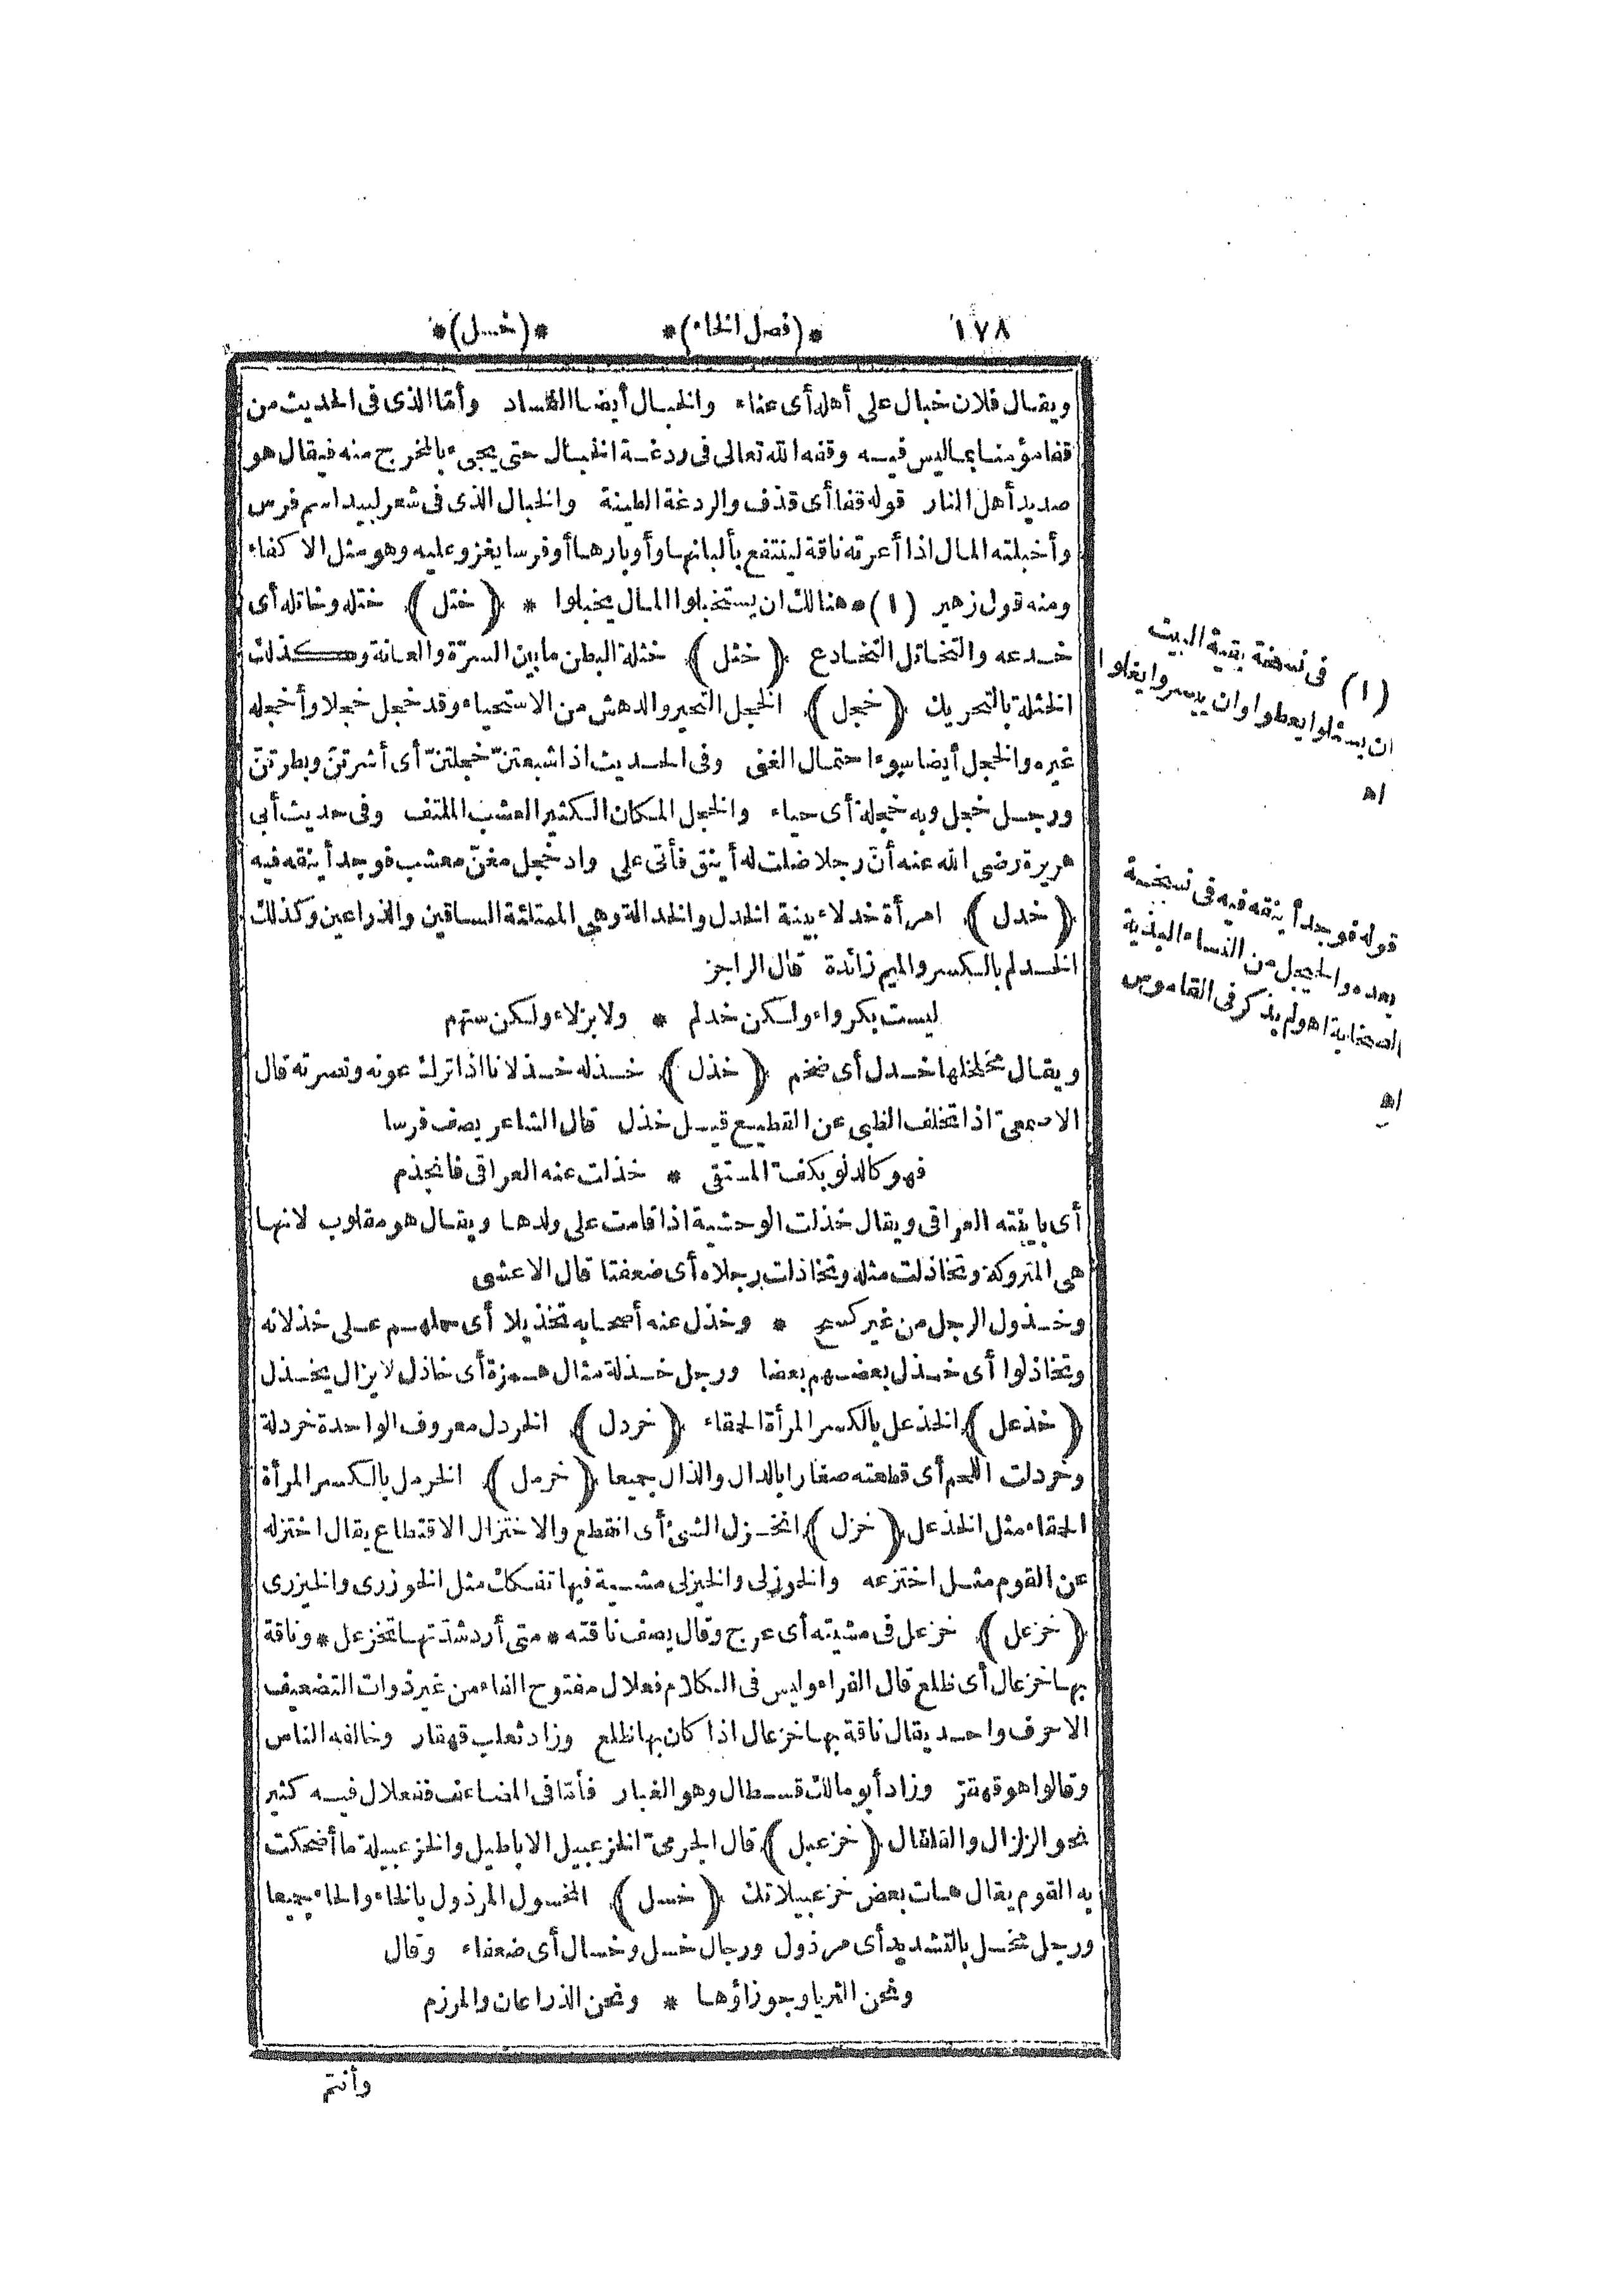 ١٧٨ *(فصل الخاء)* *(خسل)*
ويقال فلان خبال على أهله أى عناء والخبال أيضا الفساد وأما الذى فى الحديث من
قفا مؤمنا بما ليس فيه وقفه الله تعالى فى ردغة الخبال حتى يجىء بالمخرج منه فيقال هو
صديد أهل النار قوله قفا أى قذف والردغة الطينة والخبال الذى فى شعر لبيد اسم فرس
وأخبلته المال اذا أعرته ناقة لينتفع بألبانها وأوبارها أو فرسا يغزو عليه وهو مثل الاكفاء
ومنه قول زهير (١) * هنالك ان يستخبلوا المال يخبلوا * (ختل) ختله وخاتله أى
خدعه والتخاتل التخادع (خثل) خثلة البطن مابين السرّة والعانة وكذلك
الخثلة بالتحريك (خجل) الخجل التحير والدهش من الاستحياء وقد خجل خجلا وأخجله
غيره والخجل أيضا سوء احتمال الغنى وفى الحديث اذا شبعتنّ خجلتنّ أى أشرتنّ وبطرتنّ
ورجل خجل وبه خجلة أى حياء والخجل المكان الكثير العشب الملتف وفى حديث أبى
هريرة رضى الله عنه أنّ رجلا ضلت له أينق فأتى على واد خجل مغنّ معشب فوجد أينقه فيه
(خدل) امرأة خدلاء بينة الخدل والخدالة وهى الممتلئة الساقين والذراعين وكذلك
الخدلم بالكسر والميم زائدة قال الراجز
ليست بكرواء ولكن خدلم * ولا بزلاء ولكن ستهم
ويقال مخلخلها خدل أى ضخم (خذل) خذله خذلانا اذا ترك عونه ونصرته قال
الاصمعىّ اذا تخلف الظبى عن القطيع قيل خذل قال الشاعر يصف فرسا
فهو كالدلو بكفّ المستقى * خذلت عنه العراقى فانجذم
أى باينته العراقى ويقال خذلت الوحشية اذا قامت على ولدها ويقال هو مقلوب لانها
هى المتروكة وتخاذلت مثله وتخاذلت رجلاه أى ضعفتا قال الاعشى
وخذول الرجل من غير كسح * وخذل عنه أصحابه تخذيلا أى حملهم على خذلانه
وتخاذلوا أى خذل بعضهم بعضا ورجل خذلة مثال همزة أى خاذل لا يزال يخذل
(خذعل) الخذعل بالكسر المرأة الحمقاء (خردل) الخردل معروف الواحدة خردلة
وخردلت اللحم أى قطعته صغارا بالدال والذال جميعا (خرمل) الخرمل بالكسر المرأة
الحمقاء مثل الخذعل (خزل) انخزل الشئ أى انقطع والاختزال الاقتطاع يقال اختزله
عن القوم مثل اختزعه والخوزلى والخيزلى مشية فيها تفكك مثل الخوزرى والخيزرى
(خزعل) خزعل فى مشيته أى عرج وقال يصف ناقته * متى أرد شدّتها تخزعل * وناقة
بها خزعال أى ظلع قال الفراء وليس فى الكلام فعلال مفتوح الفاء من غير ذوات التضعيف
الاحرف واحد يقال ناقة بها خزعال اذا كان بها ظلع وزاد ثعلب قهقار وخالفه الناس
وقالوا هو قهقرّ وزاد أبو مالك قسطال وهو الغبار فأمّا فى المضاعف ففعلال فيه كثير
نحو الزلزال والقلقال (خزعبل) قال الجرمىّ الخزعبيل الاباطيل والخزعبيلة ما أضحكت
به القوم يقال هات بعض خزعبيلاتك (خسل) المخسول المرذول بالخاء والحاء جميعا
ورجل مخسل بالتشديد أى مرذول ورجال خسل وخسال أى ضعفاء وقال
ونحن الثريا وجوزاؤها * ونحن الذراعان والمرزم
وأنتم
(١) فى نسخة بقية البيت
ان يسئلوا يعطوا وان ييسروا يغلوا
اه
قوله فوجد أينقه فيه فى نسخة
بعده والخجل من النساء البذية
الصخابة اه ولم يذكر فى القاموس
اه